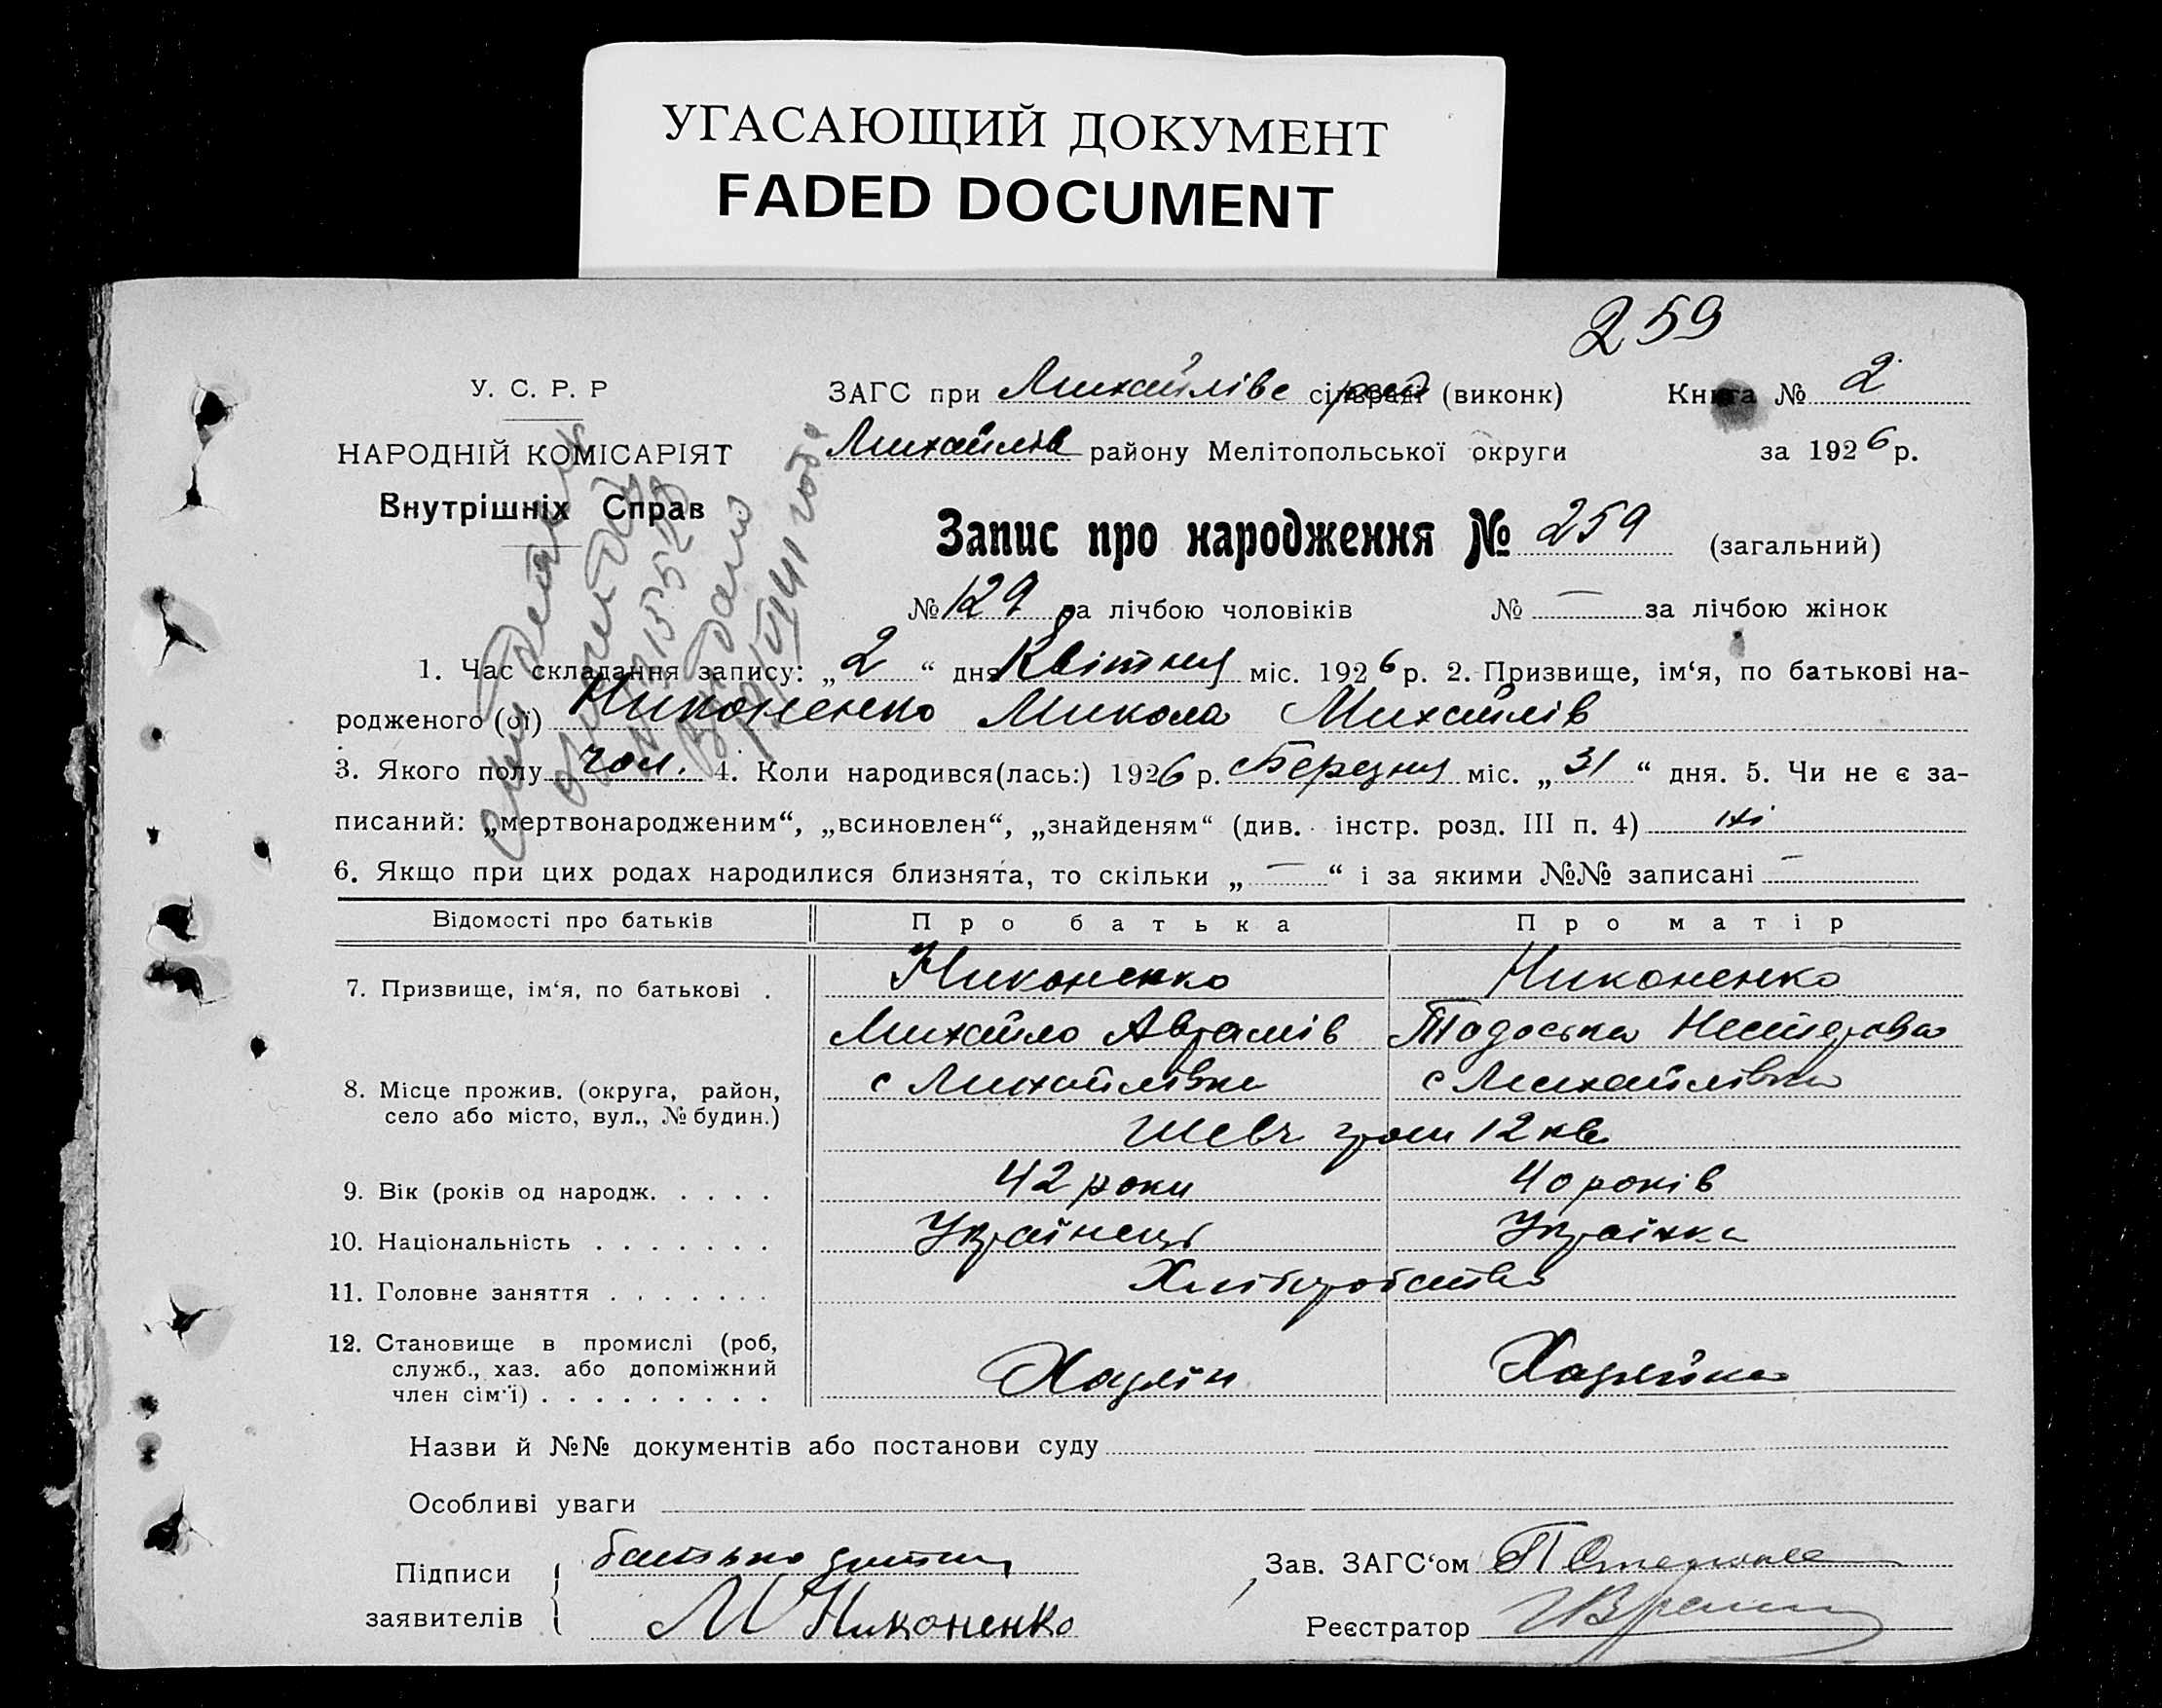 УГАСАЮЩИЙ ДОКУМЕНТ
FADED DOCUMENT
259
У. С. Р. Р
ЗАГС при Михайлівс сільраді (виконк)
Книга № 2
НАРОДНІЙ КОМІСАРІЯТ
Михайлів району Мелітопольської округи
за 1926 р.
Внутрішніх Справ
Запис про народження № 259 (загальний)
№ 129 за лічбою чоловіків № — за лічбою жінок
1. Час складання запису: „2“ дня Квітня міс. 1926 р. 2. Призвище, ім‘я, по батькові на-
родженого (ої) Никоненко Микола Михайлів
3. Якого полу чол. 4. Коли народився(лась:) 1926 р. Березня міс. „31“ дня. 5. Чи не є за-
писаний: „мертвонародженим“, „всиновлен“, „знайденям“ (див. інстр. розд. III п. 4) ні
6. Якщо при цих родах народилися близнята, то скільки „—“ і за якими №№ записані —
Відомості про батьків
Про батька
Про матір
7. Призвище, ім‘я, по батькові .
Никоненко
Никоненко
Михайло Аврамів
Тодоська Нестерова
8. Місце прожив. (округа, район,
село або місто, вул., № будин.)
с Михайлівка
с Михайлівка
Шевч гром 12 кв
9. Вік (років од народж. . . . .
42 роки
40 років
10. Національність . . . . . . .
Українець
Українка
11. Головне заняття . . . . . . .
Хліборобство
12. Становище в промислі (роб,
служб., хаз. або допоміжний
член сім‘ї) . . . . . . . . .
Хазяїн
Хазяйка
Назви й №№ документів або постанови суду
Особливі уваги
Підписи
заявителів
батько дитини
М Никоненко
Зав. ЗАГС‘ом
Реєстратор